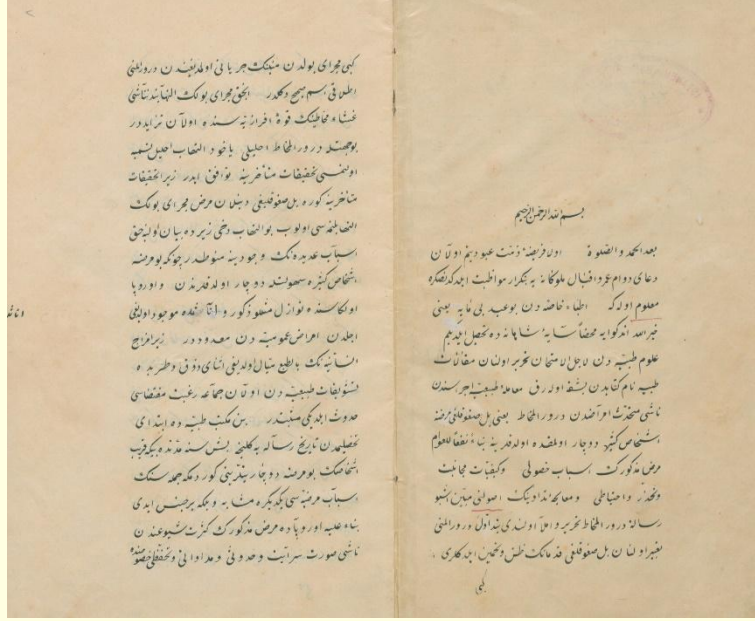 بسم الله الرحمن الرحيم
بعد الحمد والصلوة اوله فريضهٔ ذمت عبوديتم اولان
دعاى دوام عمر و اقبال ملوكانه يه تكرار مواظبت ايدلدكدنصكره
معلوم اوله كه اطباء خاصه دن بو عبد بى مايه يعنى
خير الله اندكرايه محضا سايهٔ شاهانه ده تحصيل ايتديكم
علوم طبيه دن لاجل الامتحان تحرير اولنان مقالات
طبيه نام كتابدن بشقه اوله رق معاملهٔ طبيعت اجراسندن
ناشى متحدث امراضدن درور المخاط يعنى بل صغوقلغى مرضنه
اشخاص كثيره دوچار اولمقده اولدقلرينه بناء نفعا للعوام
مرض مذكورك اسباب حصولى وكيفيات مجانبت
وتحذر واحتياطى ومعالجه و تداوينك اصولنى مبين اشبو
رسالهٔ درور المخاط تحرير و املا اولندى درور المنى
تعبير اولنان بل صغوقلغى قدمانك ظن وتخمين ايلدكلرى
كبى
كبى مجراى بولدن منينك جريانى اولمديغندن درور المنى
اطلاقى رسم صحيح دكلدر الحق مجراى بولك التهابندن ناشى
غشاء مخاطينك قوهٔ افرازيه سنده اولان تزايددر
بو جهتله درور المخاط احليلى ياخود التهاب احليل تسميه
اولنمسى تحقيقات متأخرينه توافق ايدر زيرا تحقيقات
متأخرينه كوره بل صغوقلغى دينلان مرض مجراى بولك
التهابلنمسى اولوب بو التهاب دخى زيرده بيان اولنه جق
اسباب عديده نك وجودينه منوطدر چونكه بو مرضه
اشخاص كثيره سهولتله دوچار اولدقلرندن و اوروپا
اولكاسنده نوازل مذكور و آفاقده موجود اولديغى
اجلدن امراض عموميه دن معدوددر زيرا مزاج
انسانيه نك بالطبع ميال اولديغى اثناى ذوق و طربده
تشويقات طبيعيه دن اولان جماعه رغبت مقتضاسى
حدوث ايده كلمشدر بن مكتب طبيه ده ابتداى
تحصيلمدن تاريخ رساله يه كلنجه بش سنه مدتده بيكه قريب
اشخاصك بو مرضه دوچار اولديغنى كوردم كه جمله سنك
اسباب مرضيه سى يكديكره مشابه وبلكه بر جنس ايدى
بناء عليه اوروپاده مرض مذكورك كثرت شيوعندن
ناشى صورت سرايت وحدوثى ومداواتى وتحفظى خصوصنده